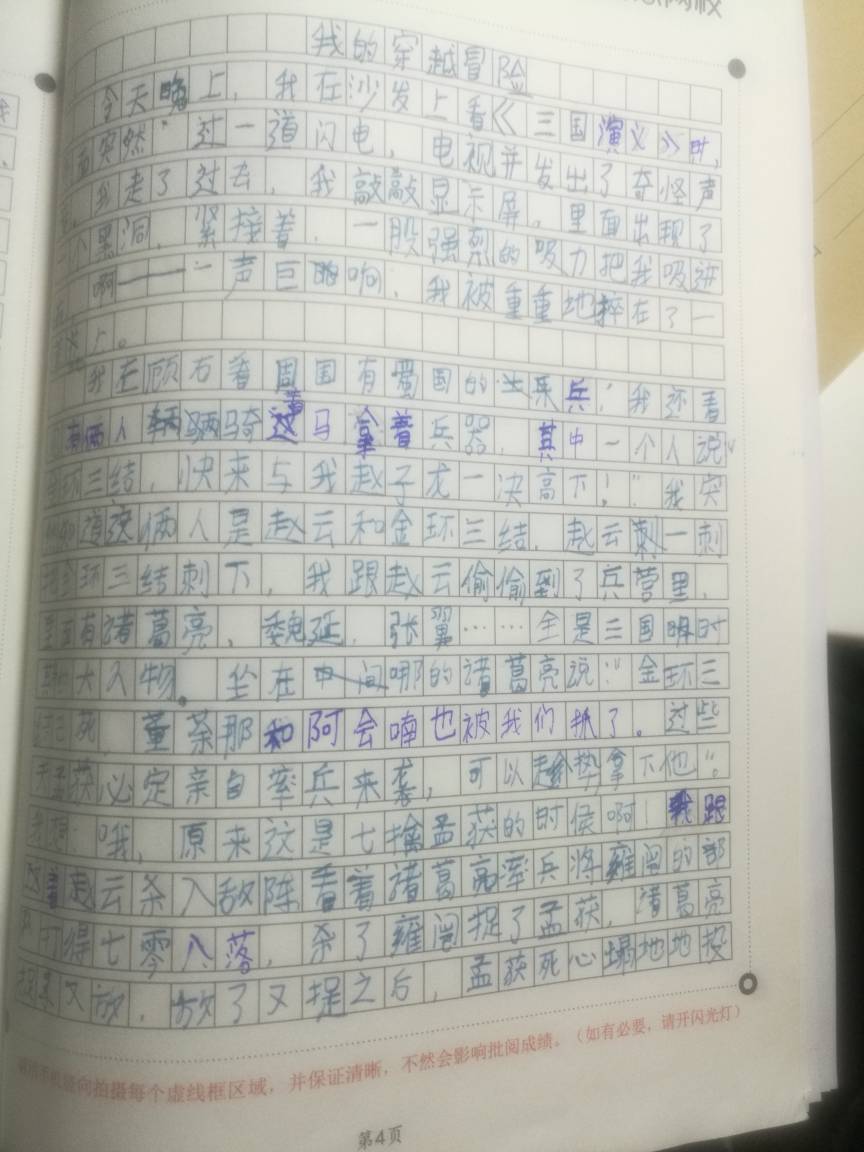 我的穿越冒险
今天晚上，我在沙发上看《三国演义》时，
突然，过一道闪电，电视并发出了奇怪声
我走了过去，我敲敲显示屏，里面出现了
一个黑洞，紧接着，一股强烈的吸力把我吸进
啊——一声巨响，我被重重地摔在了一
上。
我左顾右看周围有蜀国的士兵，我还看
有俩人骑着马拿着兵器，其中一个人说“
环三结，快来与我赵子龙一决高下！”我突
知道这俩人是赵云和金环三结，赵云刺一刺
环三结刺下，我跟赵云偷偷到了兵营里，
里面有诸葛亮，魏延，张翼……全是三国时
大人物。坐在中间哪的诸葛亮说：“金环三
结已死，董荼那和阿会喃也被我们抓了。过些
孟获必定亲自率兵来袭，可以趁势拿下他”。
我想：哦，原来这是七擒孟获的时候啊！我跟
着赵云杀入敌阵看着诸葛亮率兵将雍闿的部
打得七零八落，杀了雍闿捉了孟获，诸葛亮
又放，放了又捉之后，孟获死心塌地地投
向拍摄每个虚线框区域，并保证清晰，不然会影响批阅成绩。（如有必要，请开闪光灯）
第4页